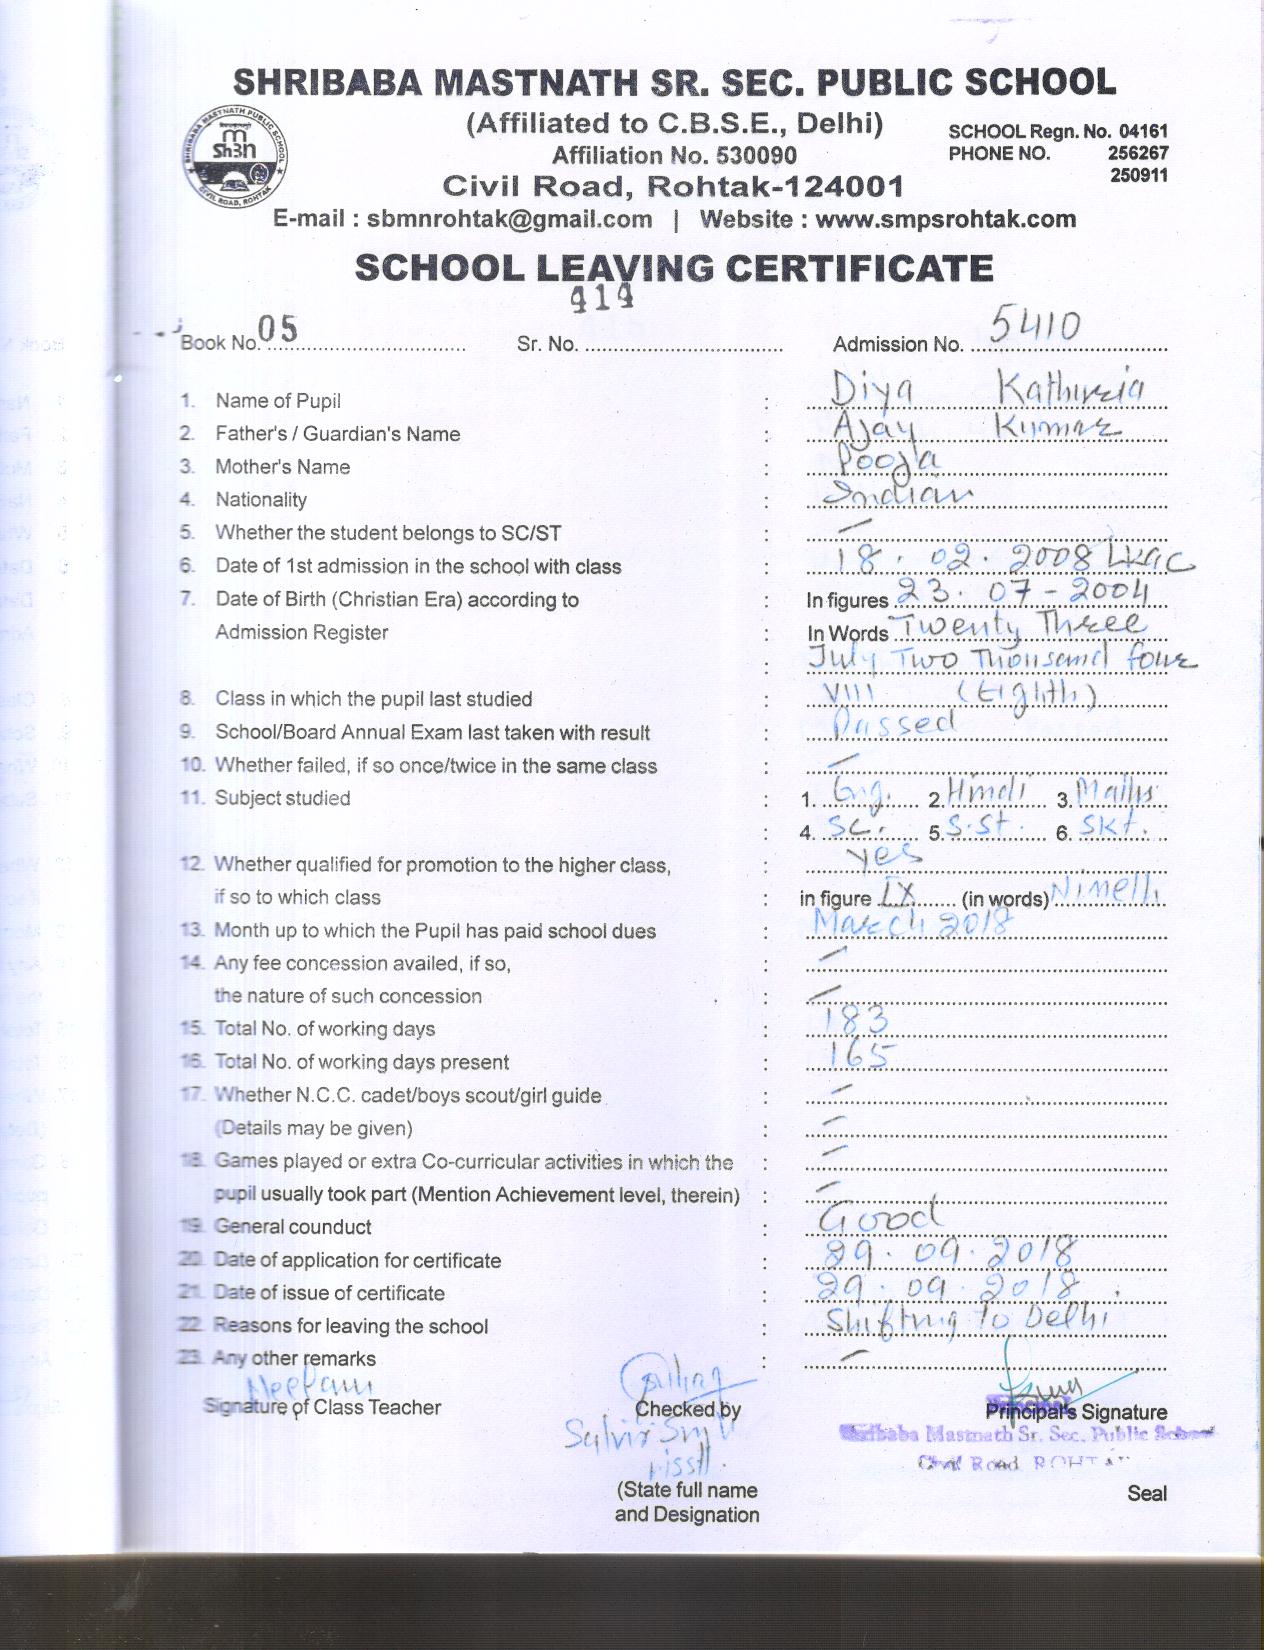 SHRIBABA MASTNATH SR. SEC. PUBLIC SCHOOL
(Affiliated to C.B.S.E., Delhi)
Affiliation No. 530090
SCHOOL Regn. No. 04161
PHONE NO. 256267
250911
Civil Road, Rohtak-124001
E-mail : sbmnrohtak@gmail.com | Website : www.smpsrohtak.com
SHRIBABA MASTNATH PUBLIC SCHOOL
CIVIL ROAD, ROHTAK
SCHOOL LEAVING CERTIFICATE
Book No. 05 Sr. No. 414 Admission No. 5410
1. Name of Pupil : Diya Kathuria
2. Father's / Guardian's Name : Ajay Kumar
3. Mother's Name : Pooja
4. Nationality : Indian
5. Whether the student belongs to SC/ST : —
6. Date of 1st admission in the school with class : 18.02.2008 LKGC
7. Date of Birth (Christian Era) according to : In figures 23.07-2004
Admission Register : In Words Twenty Three
: July Two Thousand four
8. Class in which the pupil last studied : VIII (Eighth)
9. School/Board Annual Exam last taken with result : Passed
10. Whether failed, if so once/twice in the same class : —
11. Subject studied : 1. Eng. 2. Hindi 3. Maths
: 4. Sc. 5. S.St. 6. Skt.
12. Whether qualified for promotion to the higher class, : yes
if so to which class : in figure IX (in words) Nineth
13. Month up to which the Pupil has paid school dues : March 2018
14. Any fee concession availed, if so, : —
the nature of such concession : —
15. Total No. of working days : 183
16. Total No. of working days present : 165
17. Whether N.C.C. cadet/boys scout/girl guide : —
(Details may be given) : —
18. Games played or extra Co-curricular activities in which the : —
pupil usually took part (Mention Achievement level, therein) : —
19. General counduct : Good
20. Date of application for certificate : 29.09.2018
21. Date of issue of certificate : 29.09.2018
22. Reasons for leaving the school : Shifting to Delhi
23. Any other remarks : —
Neelam
Signature of Class Teacher Checked by Principal's Signature
Shribaba Mastnath Sr. Sec. Public School
Civil Road ROHTAK
(State full name Seal
and Designation